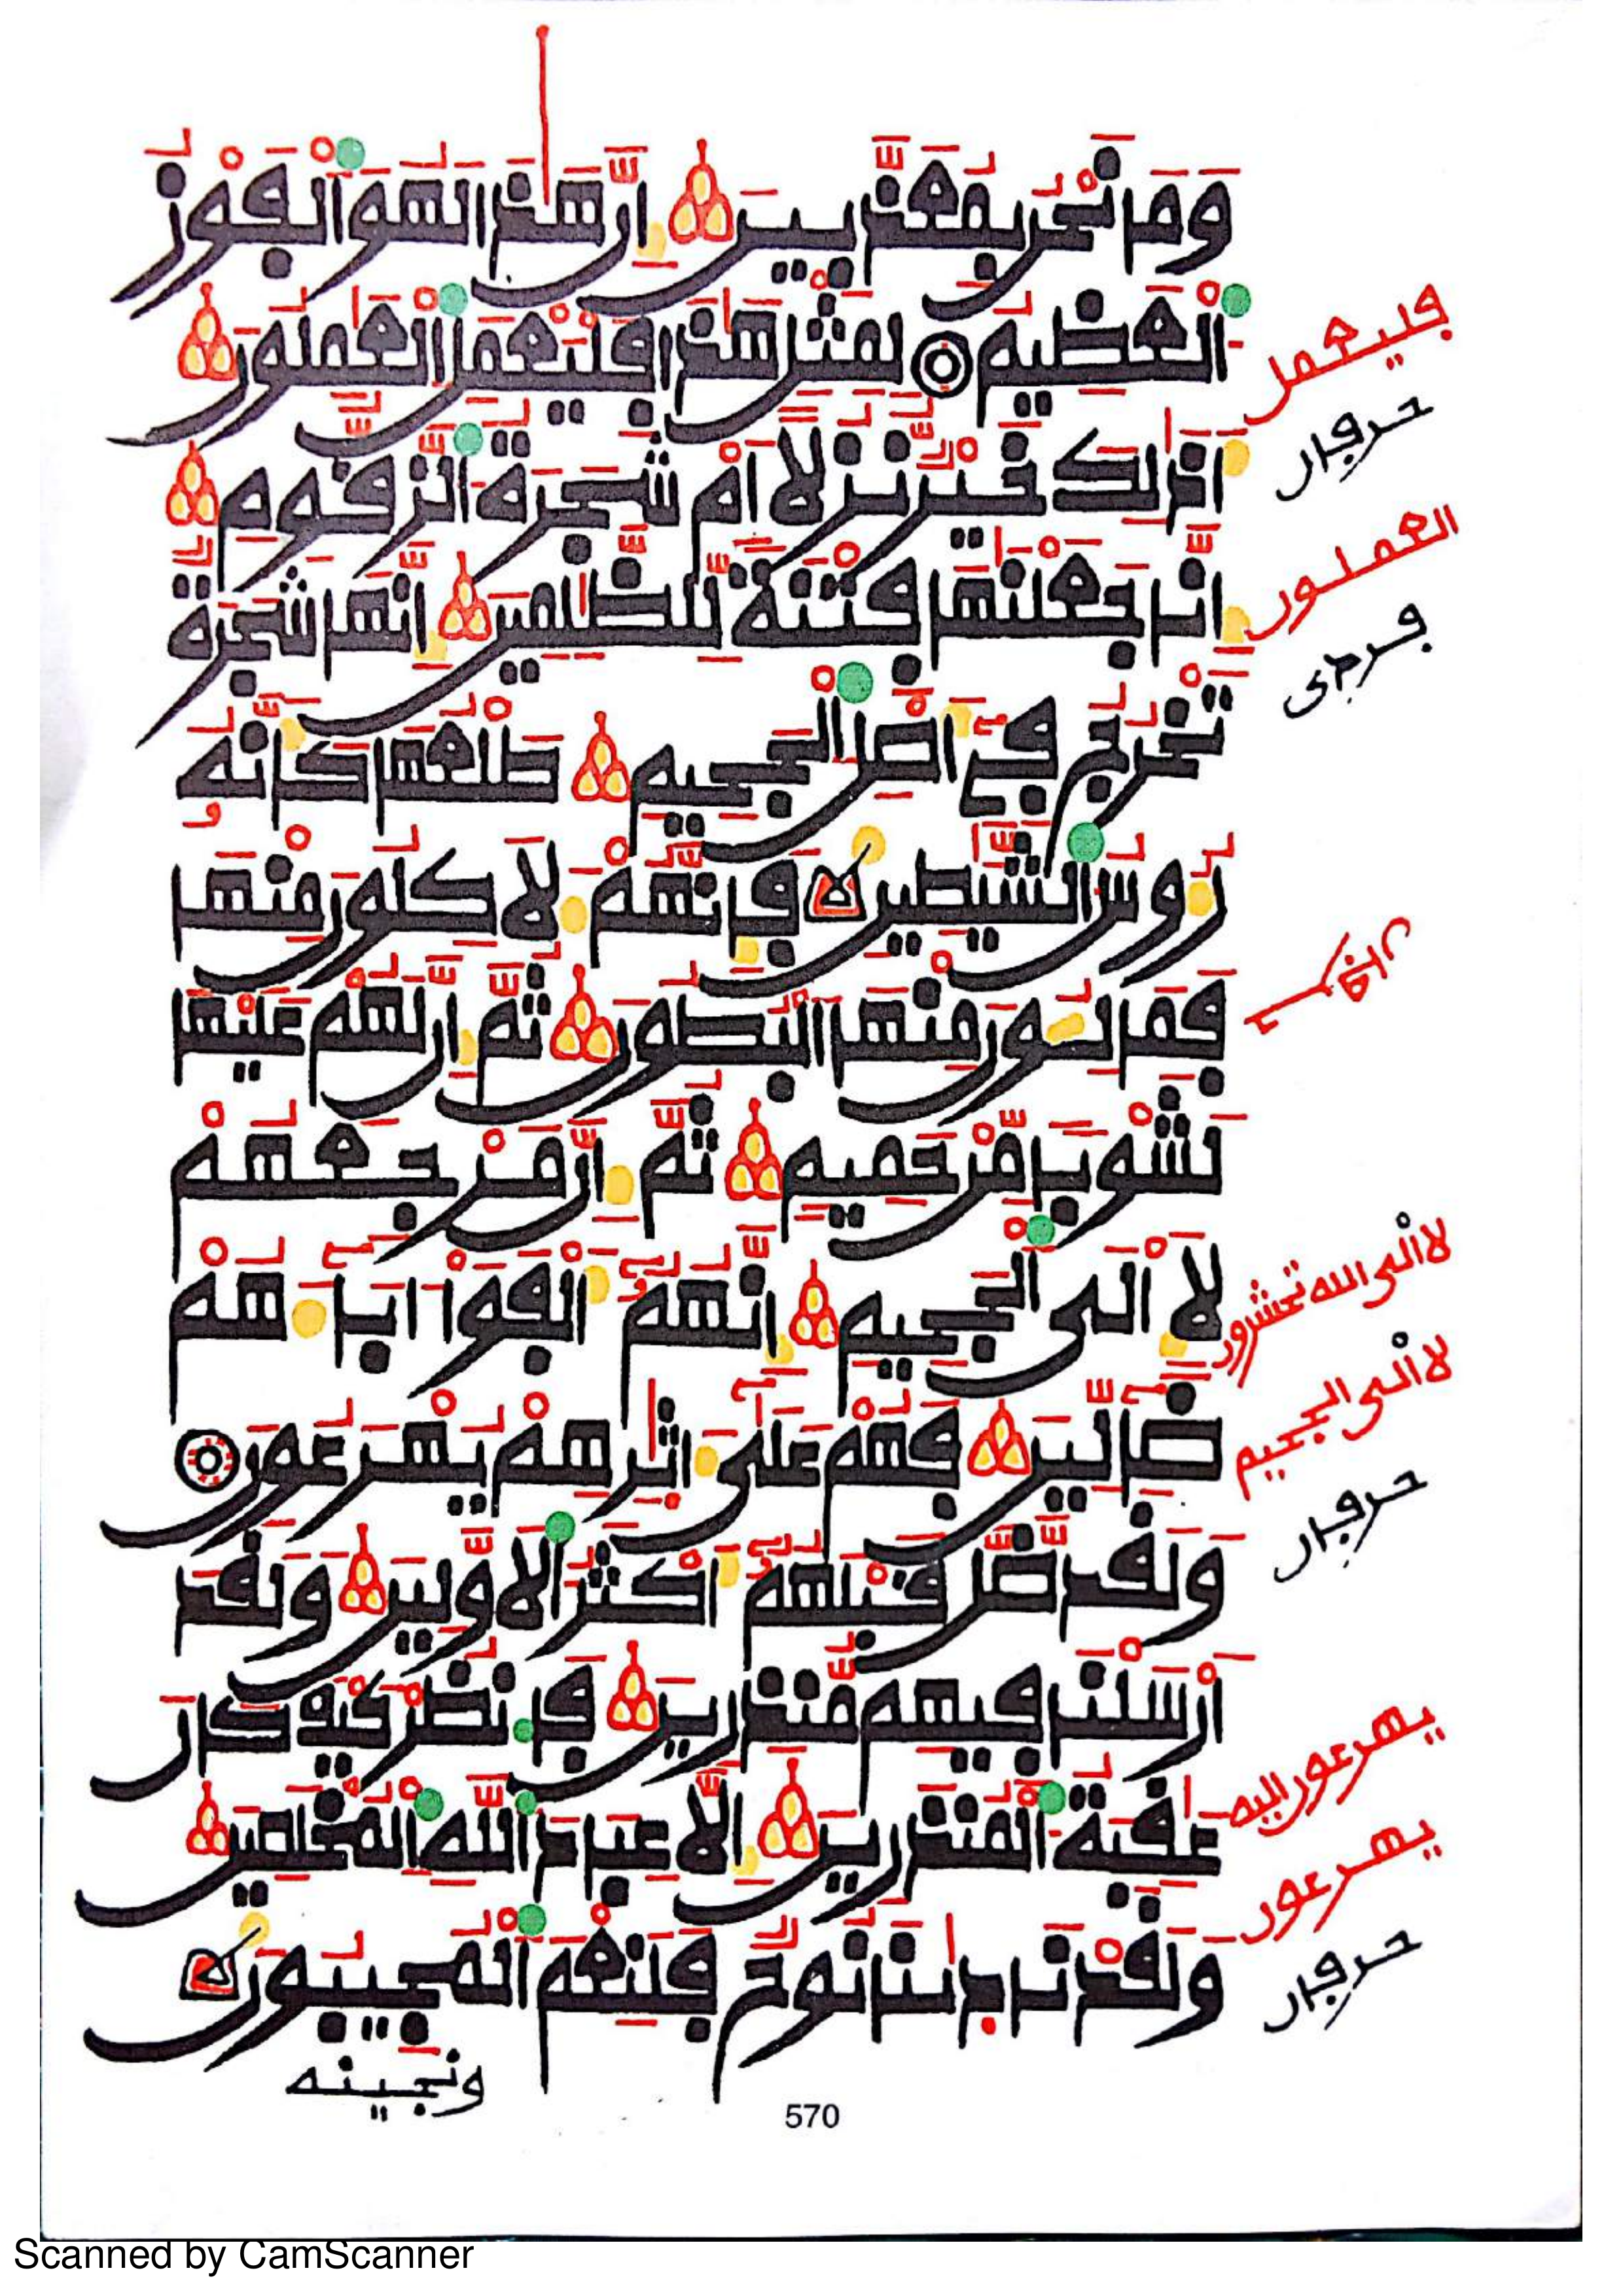 وَمَا نَحْنُ بِمُعَذَّبِينَ إِنَّ هَٰذَا لَهُوَ اَلْفَوْزُ
اُلْعَظِيمُ لِمِثْلِ هَٰذَا فَلْيَعْمَلِ اِلْعَٰمِلُونَ
أَذَٰلِكَ خَيْرٌ نُّزُلًا أَمْ شَجَرَةُ اُلزَّقُّومِ
إِنَّا جَعَلْنَٰهَا فِتْنَةً لِّلظَّٰلِمِينَ إِنَّهَا شَجَرَةٌ
تَخْرُجُ فِي أَصْلِ اِلْجَحِيمِ طَلْعُهَا كَأَنَّهُ
رُءُوسُ اُلشَّيَٰطِينِ فَإِنَّهُمْ لَأَكِلُونَ مِنْهَا
فَمَالِـُٔونَ مِنْهَا اَلْبُطُونَ ثُمَّ إِنَّ لَهُمْ عَلَيْهَا
لَشَوْبًا مِّنْ حَمِيمٍ ثُمَّ إِنَّ مَرْجِعَهُمْ
لَإِلَى اَلْجَحِيمِ إِنَّهُمُ أَلْفَوْا ابَآءَهُمْ
ضَآلِّينَ فَهُمْ عَلَىٰ ءَاثَٰرِهِمْ يُهْرَعُونَ
وَلَقَد ضَّلَّ قَبْلَهُمُ أَكْثَرُ اُلْأَوَّلِينَ وَلَقَدَ
اَرْسَلْنَا فِيهِم مُّنذِرِينَ فَانظُرْ كَيْفَ كَانَ
عَٰقِبَةُ اُلْمُنذَرِينَ إِلَّا عِبَادَ اَللَّهِ اِلْمُخْلَصِينَ
وَلَقَدْ نَادَىٰنَا نُوحٌ فَلَنِعْمَ اَلْمُجِيبُونَ
ونجينه
فليعمل
حرفان
العملون
لا الى الله تحشرون
لا الى الجحيم
حرفان
يهرعون اليه
يهرعون
حرفان
570
Scanned by CamScanner